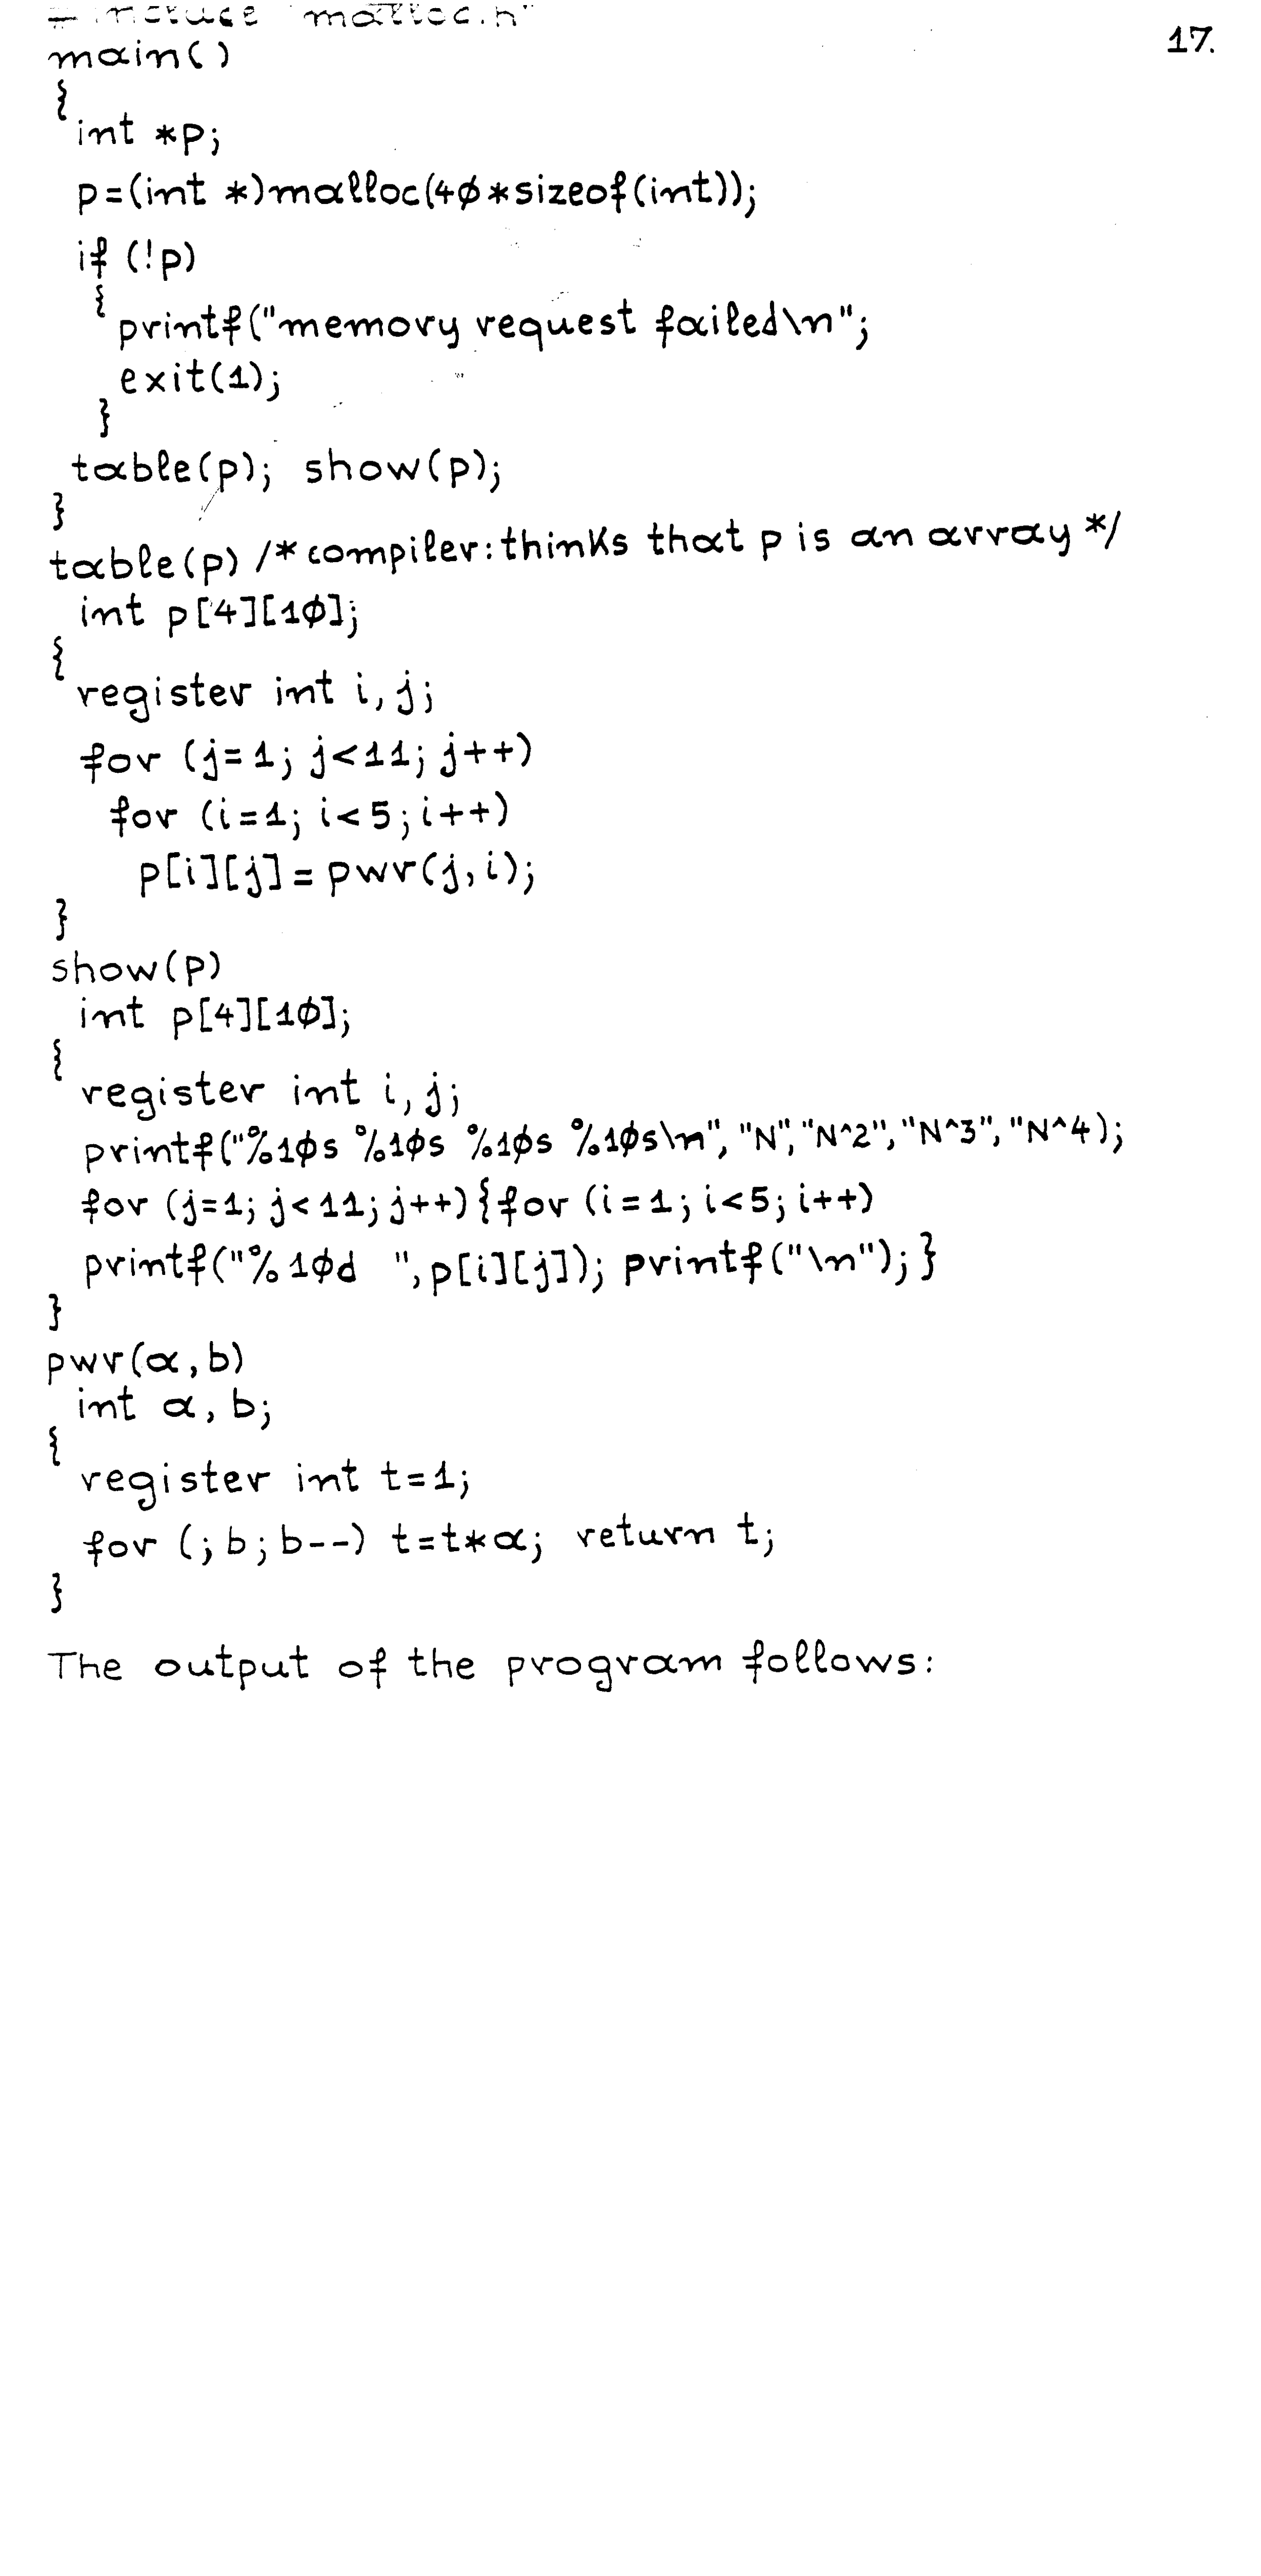 # include "malloc.h"
17.
main()
{
int *p;
p=(int *)malloc(4φ*sizeof(int));
if (!p)
{
printf("memory request failed\n";
exit(1);
}
table(p); show(p);
}
table(p) /*compiler:thinks that p is an array */
int p[4][1φ];
{
register int i, j;
for (j=1; j<11; j++)
for (i=1; i<5; i++)
p[i][j]=pwr(j,i);
}
show(p)
int p[4][1φ];
{
register int i, j;
printf("%1φs %1φs %1φs %1φs\n", "N", "N^2", "N^3", "N^4);
for (j=1; j<11; j++){for (i=1; i<5; i++)
printf("%1φd ",p[i][j]); printf("\n"); }
}
pwr(a,b)
int a, b;
{
register int t=1;
for (;b;b--) t=t*a; return t;
}
The output of the program follows: